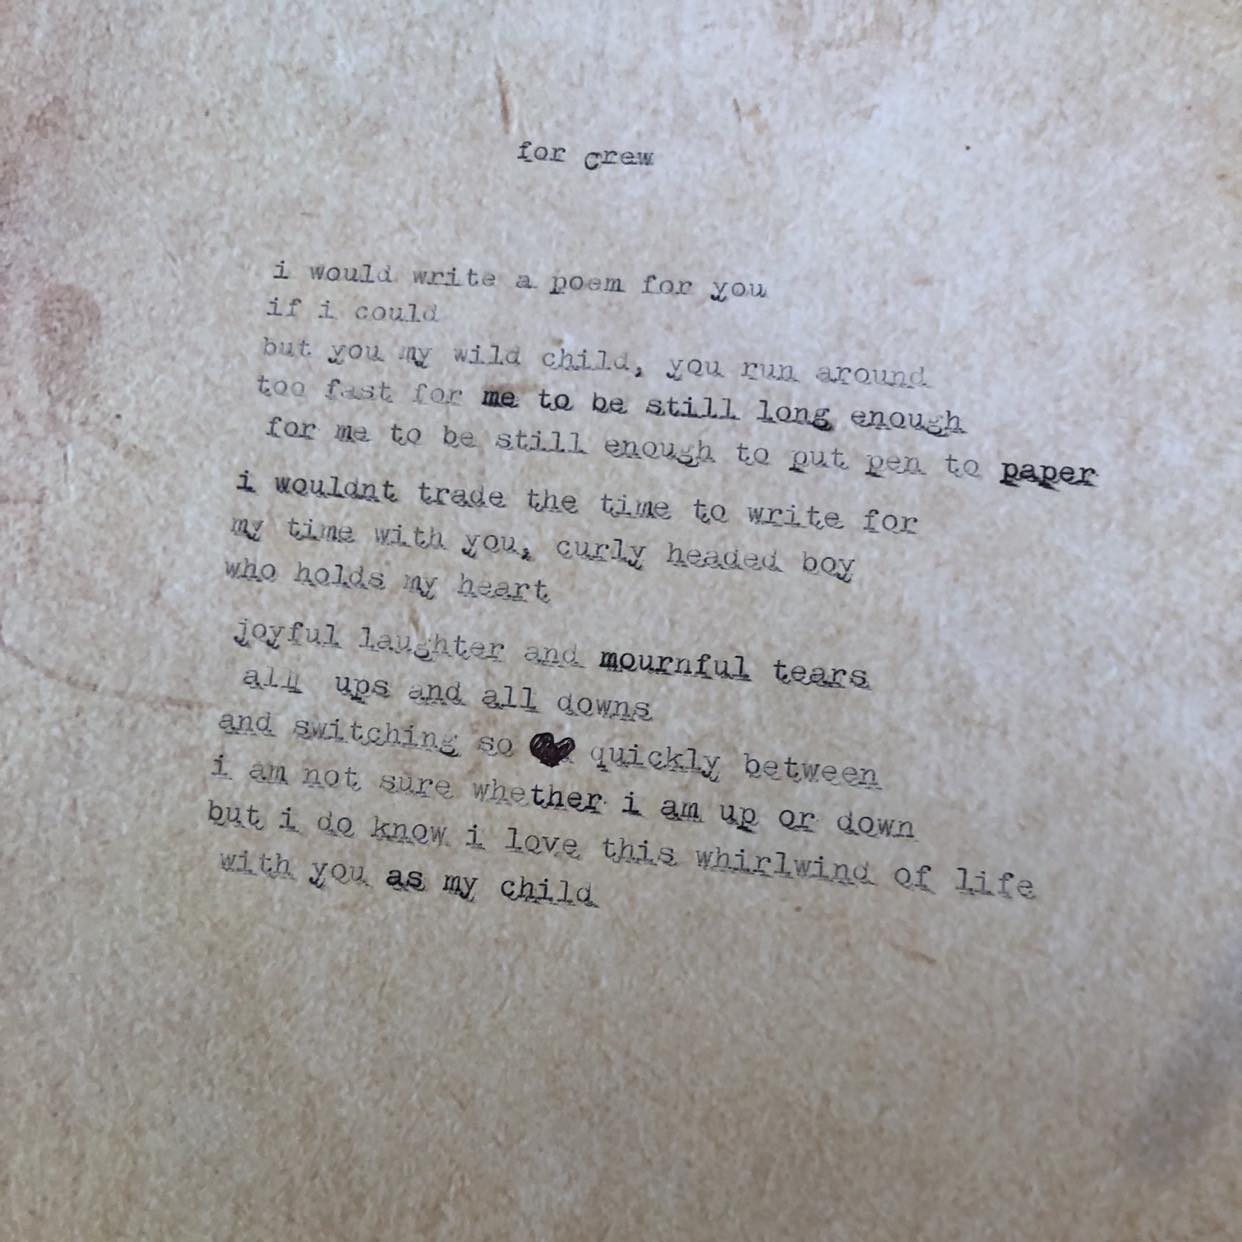 for crew
i would write a poem for you
if i could
but you my wild child, you run around
too fast for me to be still long enough
for me to be still enough to put pen to paper
i wouldnt trade the time to write for
my time with you, curly headed boy
who holds my heart
joyful laughter and mournful tears
all ups and all downs
and switching so quickly between
i am not sure whether i am up or down
but i do know i love this whirlwind of life
with you as my child